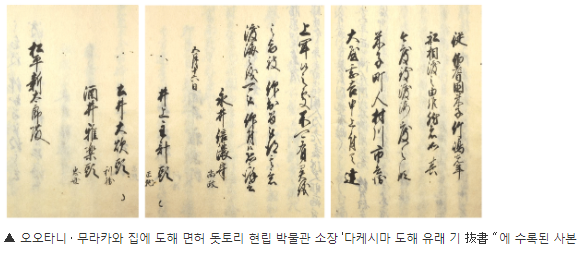 従伯耆国米子竹嶋先年
船相渡之由候然者如其
今度致渡海度之段
米子町人村川市兵衛
大屋甚吉申上付而達
上聞候之処不可有異儀
之旨被仰出候間被得其意
渡海之儀可被仰付候恐々謹言
五月十六日
永井信濃守
尚政
井上主計頭
正就
土井大炊頭
利勝
酒井雅楽頭
忠世
松平新太郎殿
▲ 오오타니 · 무라카와 집에 도해 면허 돗토리 현립 박물관 소장 '다케시마 도해 유래 기 抜書 “에 수록된 사본